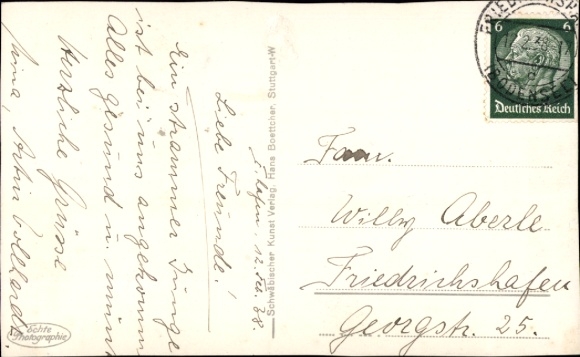 F'hafen, 12. Feb. 38.
Liebe Freunde!
Ein strammer Junge
ist bei uns angekommen
Alles gesund u. munter
Herzliche Grüsse
Echte
Photographie
Schwäbischer Kunst Verlag, Hans Boettcher, Stuttgart-W
6 6
Deutsches Reich
(BODENSEE)
Fam.
Willy Aberle
Friedrichshafen
Georgstr. 25.